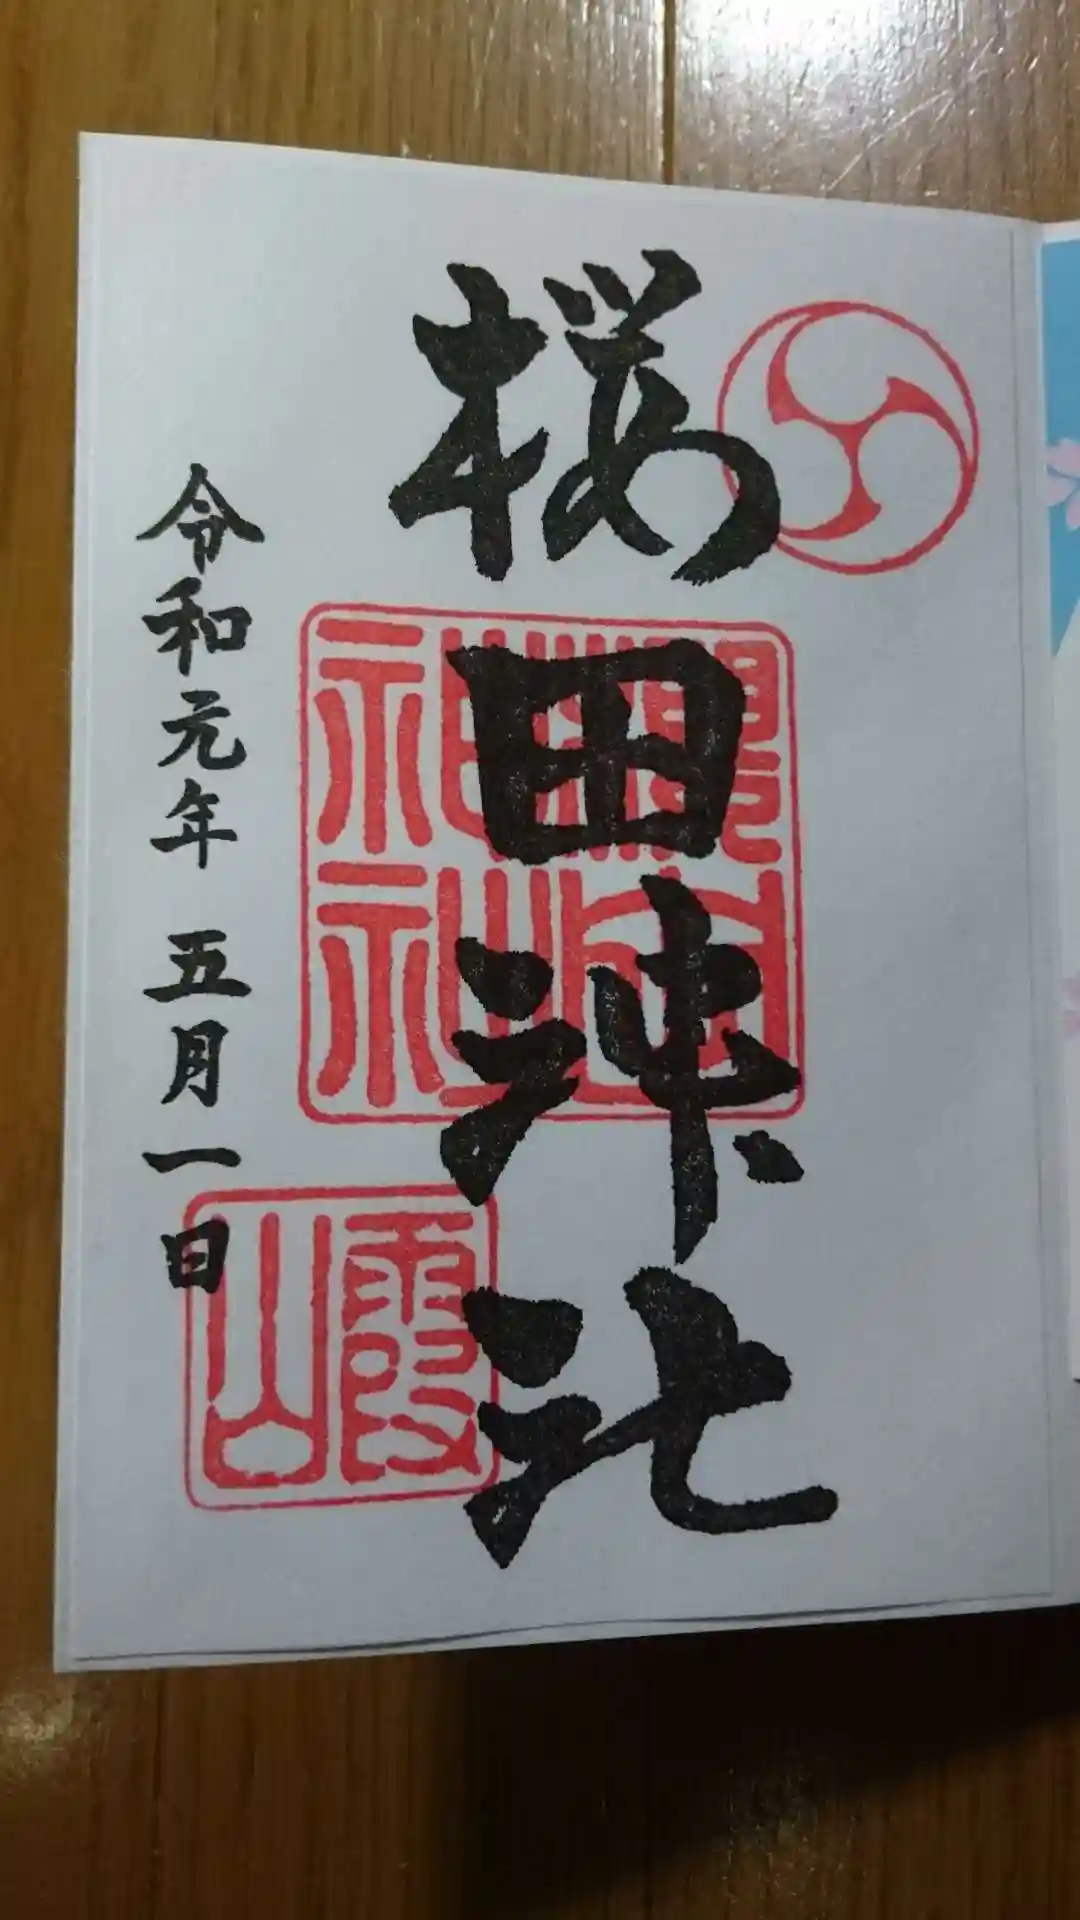 桜田神社
令和元年 五月一日
神社
霞山